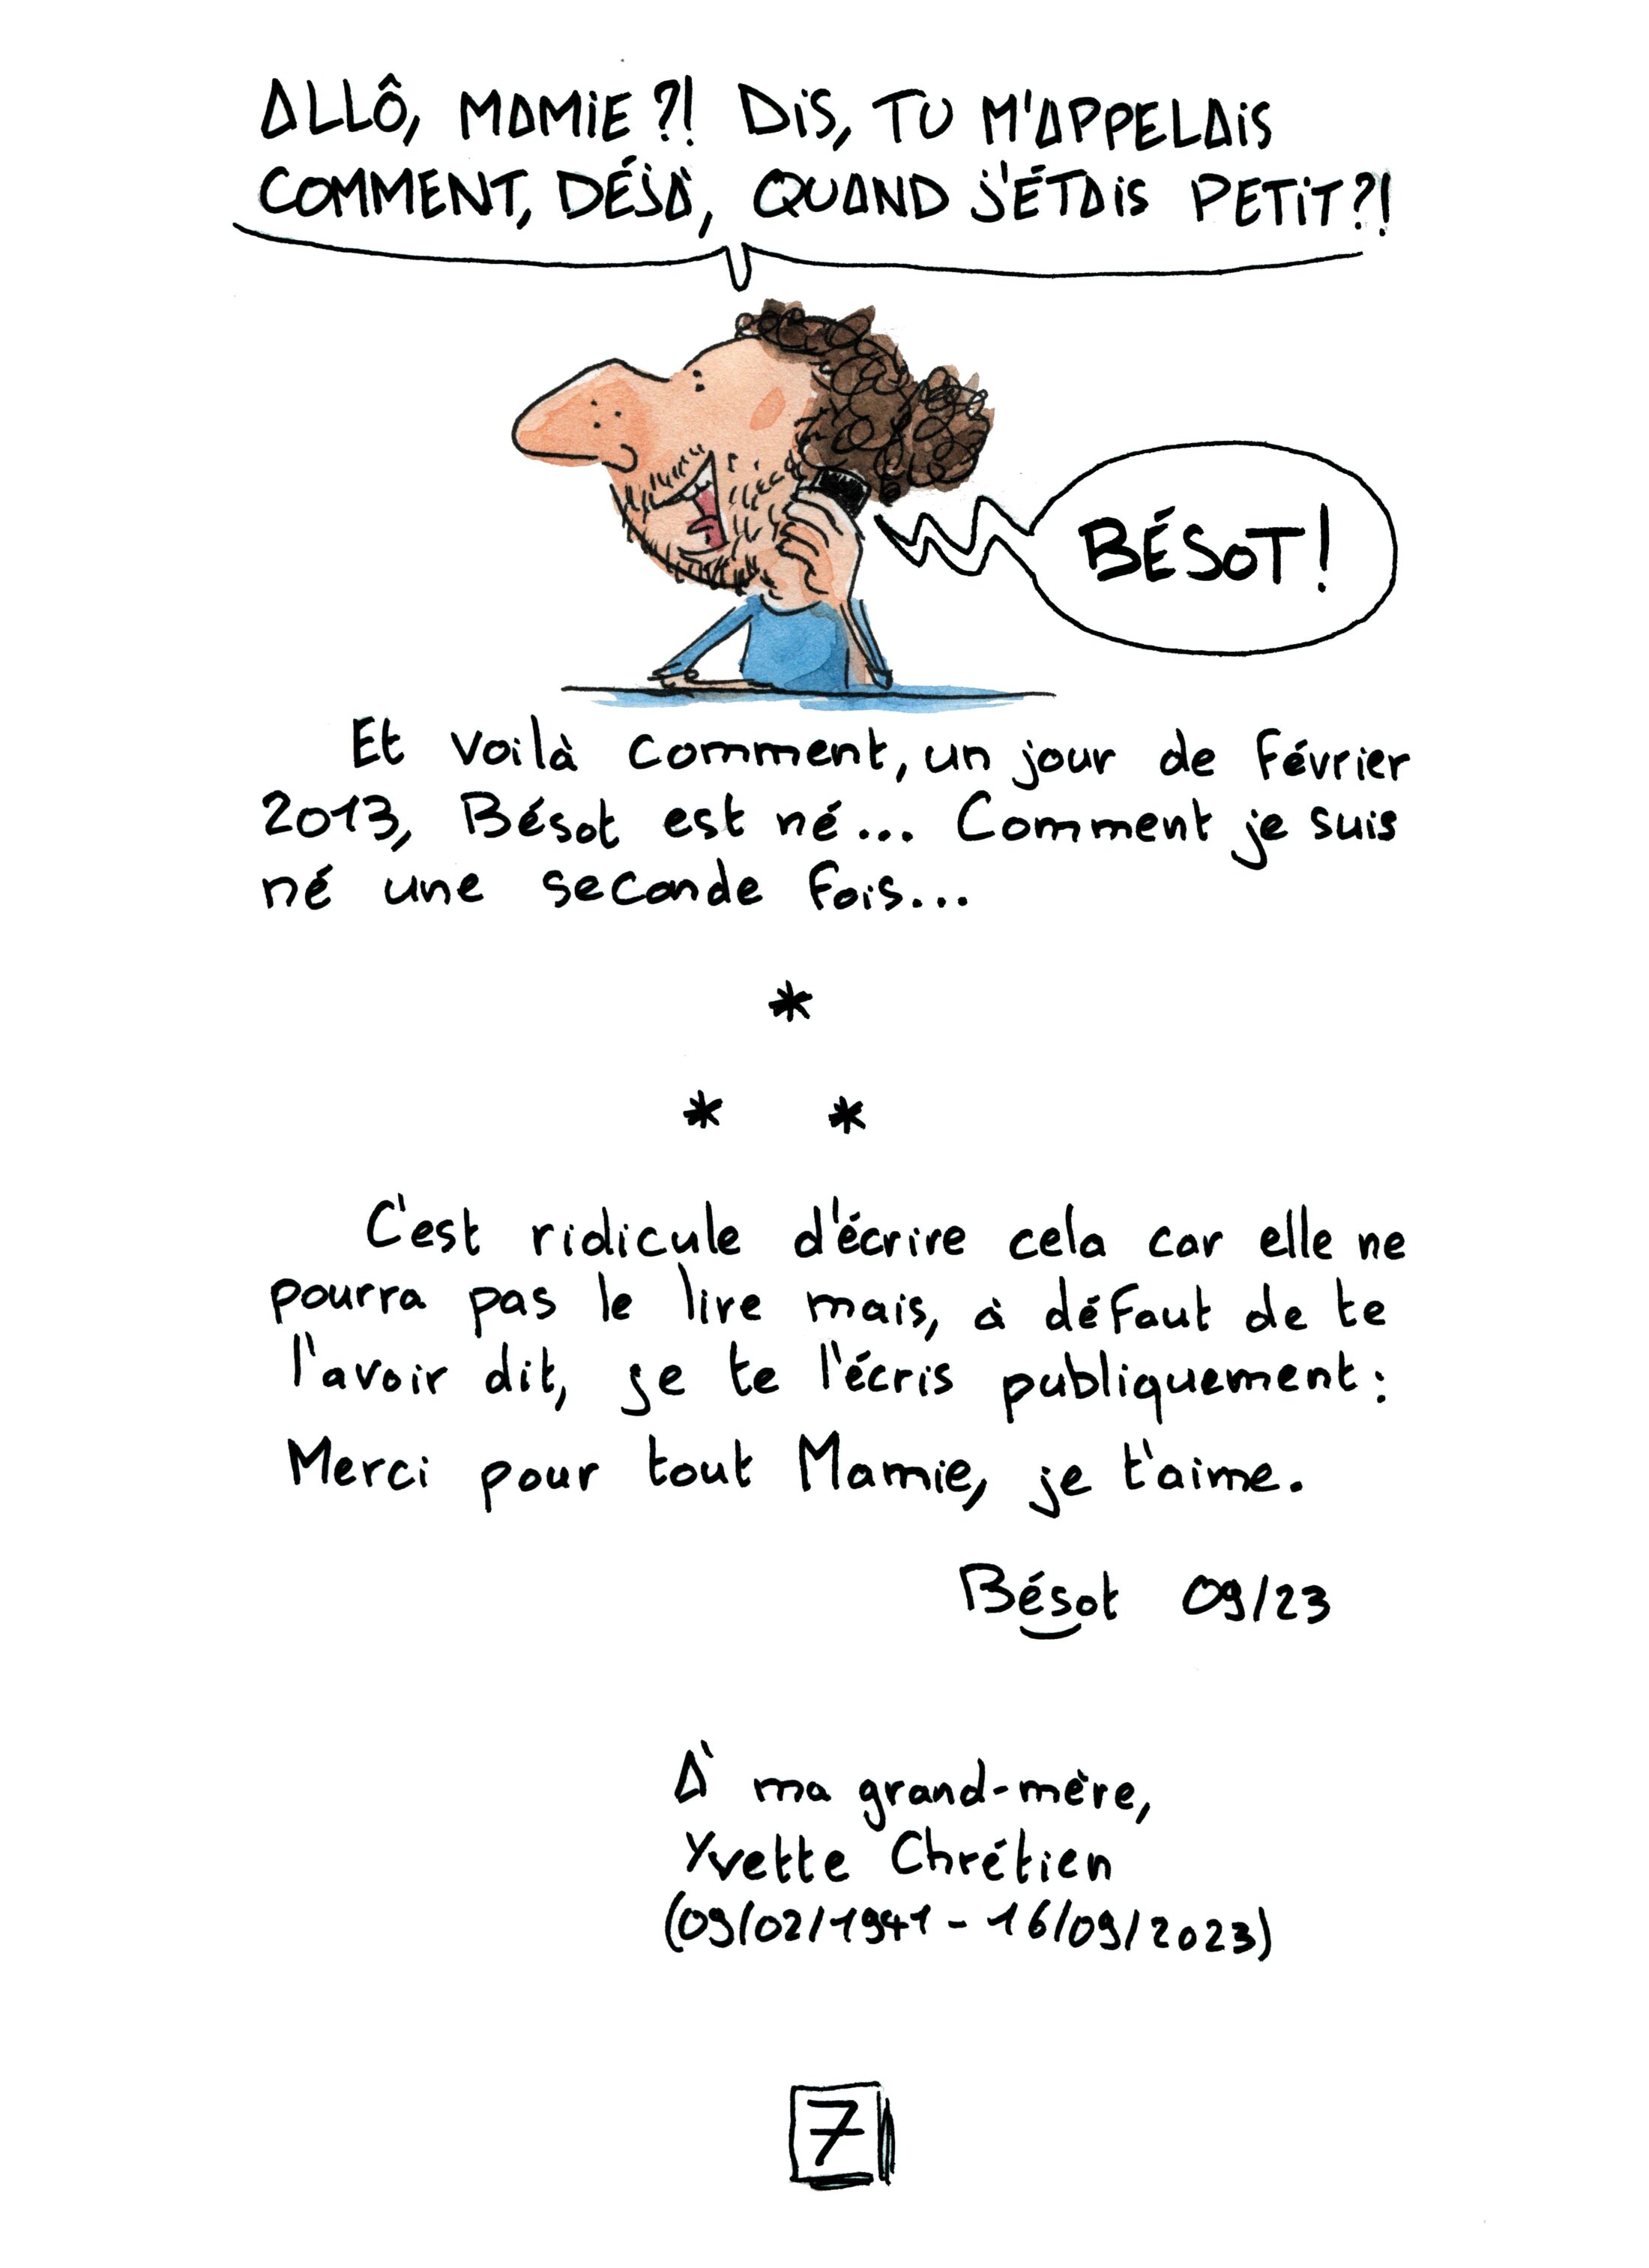 ALLÔ, MAMIE ?! DIS, TU M'APPELAIS
COMMENT, DÉJÀ, QUAND J'ÉTAIS PETIT ?!
BÉSOT !
Et voilà comment, un jour de février
2013, Bésot est né... Comment je suis
né une seconde fois...
*
* *
C'est ridicule d'écrire cela car elle ne
pourra pas le lire mais, à défaut de te
l'avoir dit, je te l'écris publiquement :
Merci pour tout Mamie, je t'aime.
Bésot 09/23
À ma grand-mère,
Yvette Chrétien
(09/02/1941 - 16/09/2023)
7